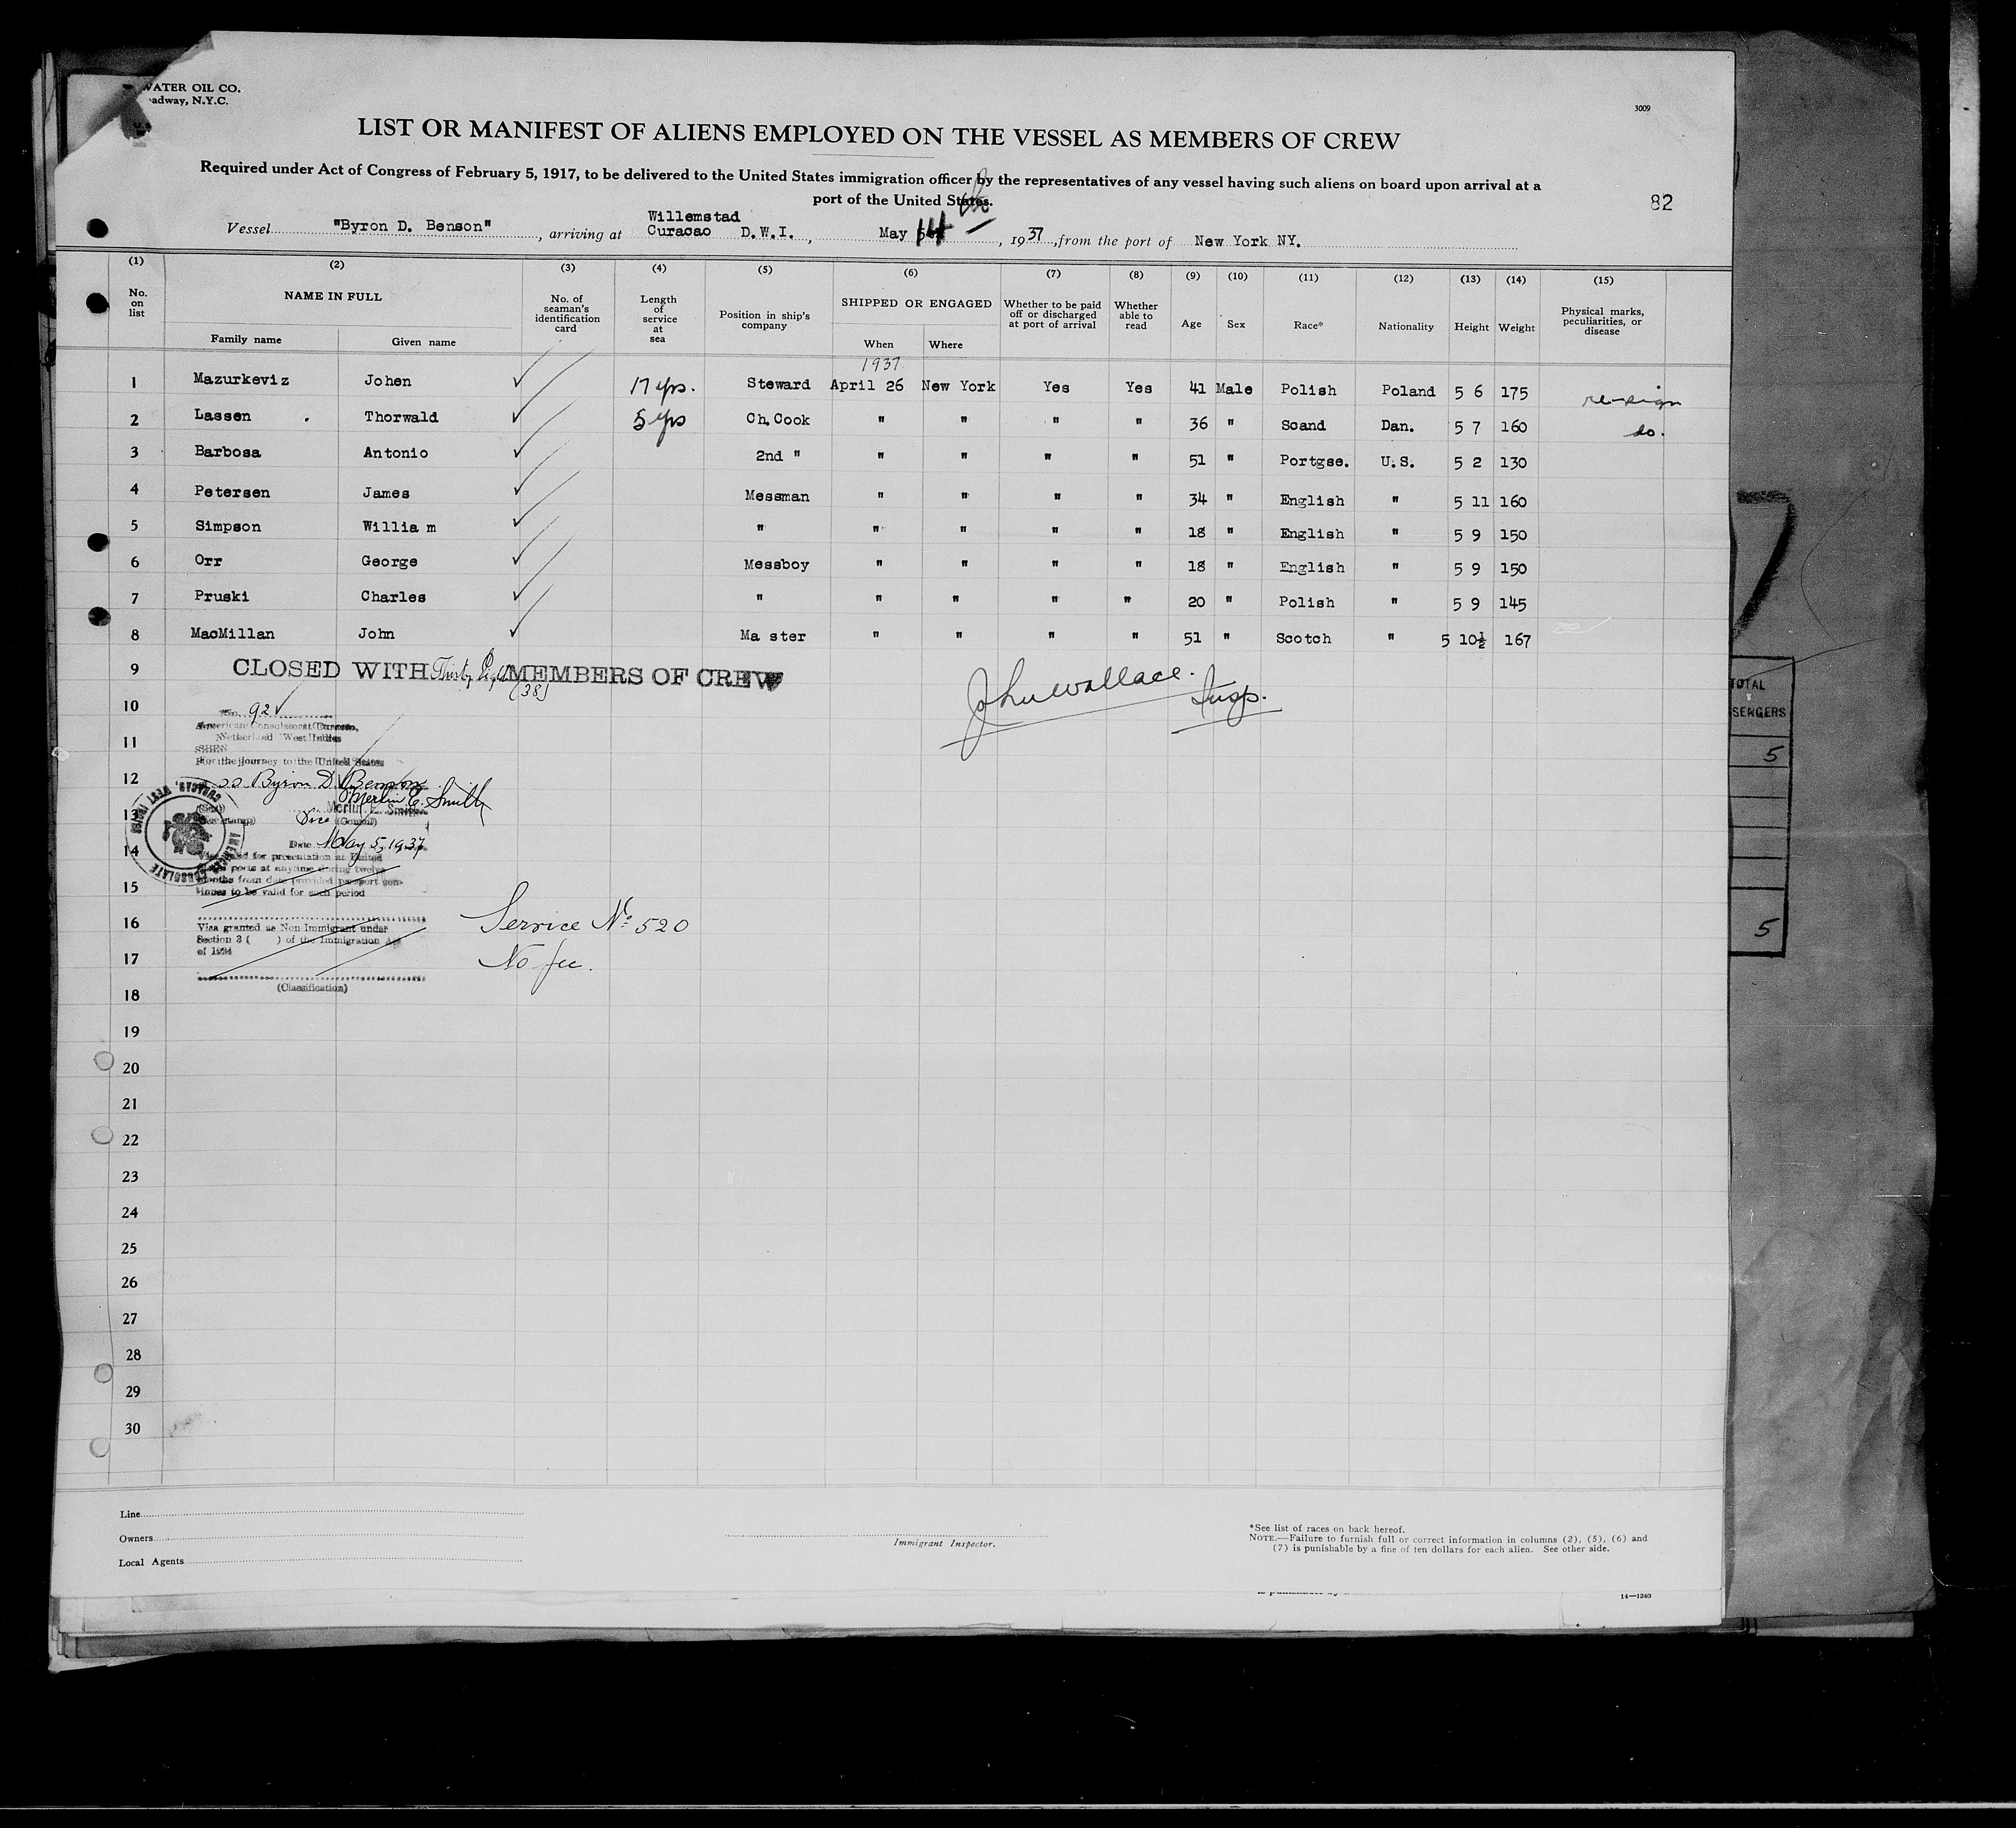 WATER OIL CO.
adway, N.Y.C.
3009
LIST OR MANIFEST OF ALIENS EMPLOYED ON THE VESSEL AS MEMBERS OF CREW
Required under Act of Congress of February 5, 1917, to be delivered to the United States immigration officer by the representatives of any vessel having such aliens on board upon arrival at a
port of the United States.
82
Willemstad
Vessel "Byron D. Benson", arriving at Curacao D.W.I., May 14th, 1937, from the port of New York NY.
(1) (2) (3) (4) (5) (6) (7) (8) (9) (10) (11) (12) (13) (14) (15)
No. on list NAME IN FULL Family name Given name No. of seaman's identification card Length of service at sea Position in ship's company SHIPPED OR ENGAGED When Where Whether to be paid off or discharged at port of arrival Whether able to read Age Sex Race* Nationality Height Weight Physical marks, peculiarities, or disease
1937
1 Mazurkeviz Johen ✓ 17 yrs. Steward April 26 New York Yes Yes 41 Male Polish Poland 5 6 175 re-sign
2 Lassen . Thorwald ✓ 5 yrs Ch.Cook " " " " 36 " Scand Dan. 5 7 160 do.
3 Barbosa Antonio ✓ 2nd " " " " " 51 " Portgse. U.S. 5 2 130
4 Petersen James ✓ Messman " " " " 34 " English " 5 11 160
5 Simpson Willia m ✓ " " " " " 18 " English " 5 9 150
6 Orr George ✓ Messboy " " " " 18 " English " 5 9 150
7 Pruski Charles ✓ " " " " " 20 " Polish " 5 9 145
8 MacMillan John ✓ Ma ster " " " " 51 " Scotch " 5 10½ 167
9 CLOSED WITH Thirty Eight MEMBERS OF CREW
(38)
John Wallace. Insp.
10 No. 92 ✓
American Consulate at Curacao,
11 Netherland West Indies
SEEN
For the journey to the United States
12 ss Byron D. Benson
Merlin E. Smith
13 Merlin E. Smith
(Seal)
Vice (Consul)
Date May 5, 1937
14 Visa valid for presentation at United
States ports at anytime during twelve
months from date provided passport con-
15 tinues to be valid for such period
AMERICAN CONSULATE CURACAO, WEST INDIES
16 Visa granted as Non Immigrant under
Section 3 ( ) of the Immigration Act
of 1924
Service No. 520
17 No fee.
(Classification)
18
19
20
21
22
23
24
25
26
27
28
29
30
Line
Owners
Local Agents
Immigrant Inspector.
*See list of races on back hereof.
NOTE.—Failure to furnish full or correct information in columns (2), (5), (6) and
(7) is punishable by a fine of ten dollars for each alien. See other side.
14—1240
7
TOTAL
SENGERS
5
5